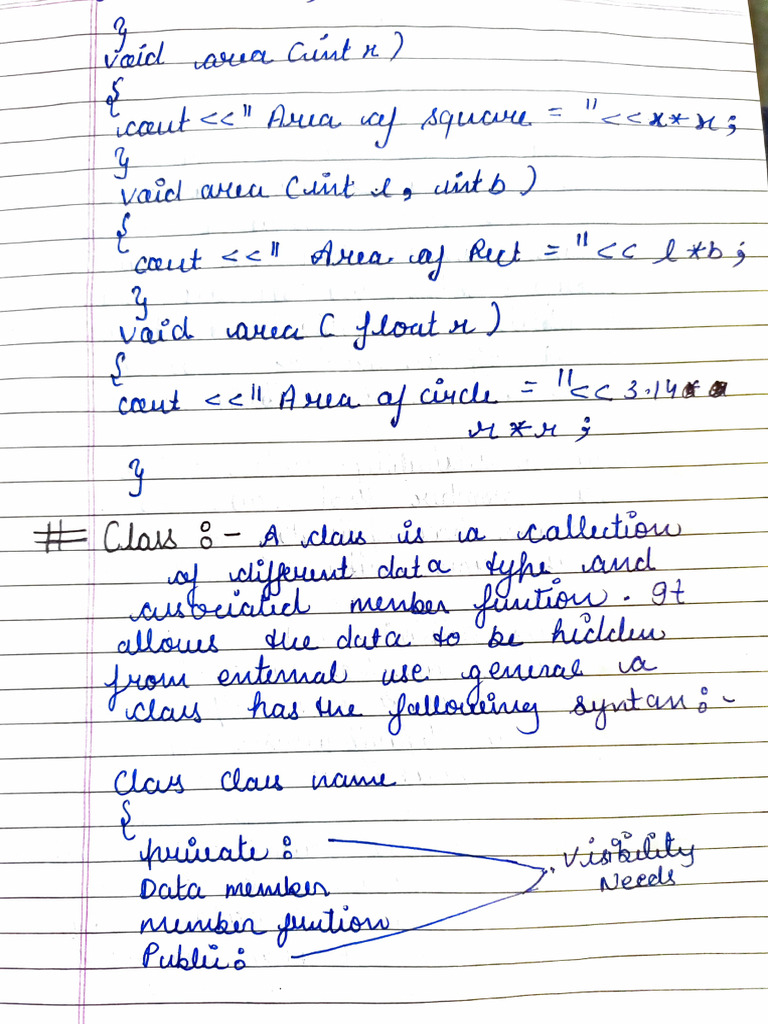 }
void area (int x)
{
cout <<" Area of square = "<<x*x;
}
void area (int l, int b)
{
cout <<" Area of Rect = "<< l*b;
}
void area ( float r)
{
cout <<" Area of circle = "<< 3.14*
r*r ;
}
# Class :- A class is a collection
of different data type and
associated member funtion. It
allows the data to be hidden
from enternal use general a
class has the following syntan:-
Class Class name
{
private :
Visibility
Needs
Data member
member funtion
Public: